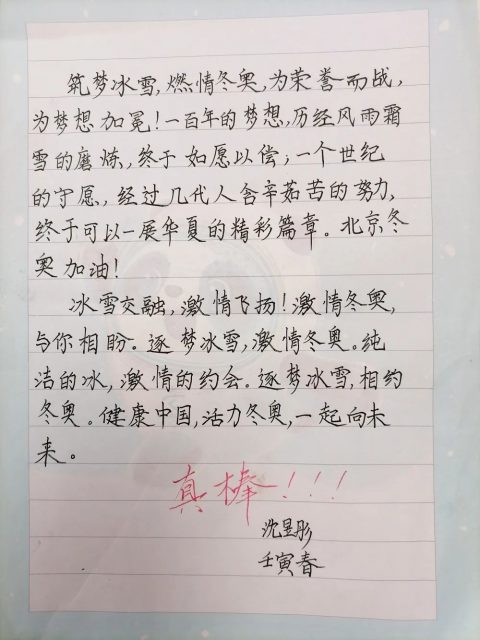 筑梦冰雪,燃情冬奥,为荣誉而战,
为梦想加冕!一百年的梦想,历经风雨霜
雪的磨炼,终于如愿以偿;一个世纪
的守愿,经过几代人含辛茹苦的努力,
终于可以一展华夏的精彩篇章。北京冬
奥加油!
冰雪交融,激情飞扬!激情冬奥,
与你相盼。逐梦冰雪,激情冬奥。纯
洁的冰,激情的约会。逐梦冰雪,相约
冬奥。健康中国,活力冬奥,一起向未
来。
真棒!!!
沈昱彤
壬寅春